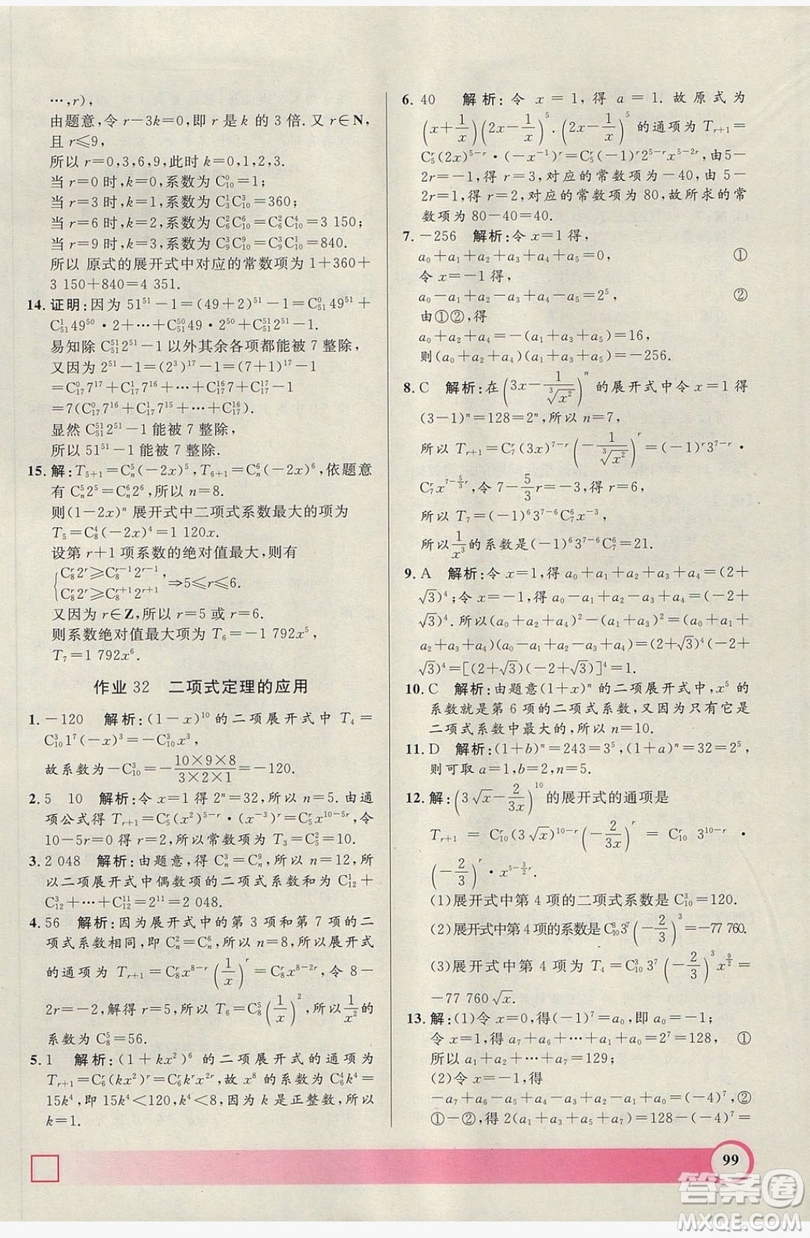 …,r),
由题意,令 r-3k=0,即 r 是 k 的 3 倍.又 r∈N,
且 r≤9,
所以 r=0,3,6,9,此时 k=0,1,2,3.
当 r=0 时,k=0,系数为 C₁₀⁰=1;
当 r=3 时,k=1,系数为 C₃¹C₁₀³=360;
当 r=6 时,k=2,系数为 C₆²C₁₀⁶=3 150;
当 r=9 时,k=3,系数为 C₉³C₁₀⁹=840.
所以 原式的展开式中对应的常数项为 1+360+
3 150+840=4 351.
14.证明:因为 51⁵¹-1=(49+2)⁵¹-1=C₅₁⁰49⁵¹+
C₅₁¹49⁵⁰·2+…+C₅₁⁵⁰49·2⁵⁰+C₅₁⁵¹2⁵¹-1.
易知除 C₅₁⁵¹2⁵¹-1 以外其余各项都能被 7 整除.
又因为 2⁵¹-1=(2³)¹⁷-1=(7+1)¹⁷-1
=C₁₇⁰7¹⁷+C₁₇¹7¹⁶+…+C₁₇¹⁶7+C₁₇¹⁷-1
=7(C₁₇⁰7¹⁶+C₁₇¹7¹⁵+…+C₁₇¹⁶).
显然 C₅₁⁵¹2⁵¹-1 能被 7 整除,
所以 51⁵¹-1 能被 7 整除.
15.解:T₅₊₁=Cₙ⁵(-2x)⁵,T₆₊₁=Cₙ⁶(-2x)⁶,依题意
有 Cₙ⁵2⁵=Cₙ⁶2⁶,解得 n=8.
则(1-2x)ⁿ 展开式中二项式系数最大的项为
T₅=C₈⁴(-2x)⁴=1 120x⁴.
设第 r+1 项系数的绝对值最大,则有
{C₈ʳ2ʳ≥C₈ʳ⁻¹2ʳ⁻¹, C₈ʳ2ʳ≥C₈ʳ⁺¹2ʳ⁺¹ ⇒5≤r≤6.
又因为 r∈Z,所以 r=5 或 r=6.
则系数绝对值最大项为 T₆=-1 792x⁵,
T₇=1 792x⁶.
作业 32 二项式定理的应用
1.-120 解析:(1-x)¹⁰的二项展开式中 T₄=
C₁₀³1⁷(-x)³=-C₁₀³x³,
故系数为-C₁₀³=-(10×9×8)/(3×2×1)=-120.
2.5 10 解析:令 x=1 得 2ⁿ=32,所以 n=5,由通
项公式得 Tᵣ₊₁=C₅ʳ(x²)⁵⁻ʳ·(x⁻³)ʳ=C₅ʳx¹⁰⁻⁵ʳ,令
10-5r=0,得 r=2,所以常数项为 T₃=C₅²=10.
3.2 048 解析:由题意,得 Cₙ³=Cₙ⁹,所以 n=12,所
以二项展开式中偶数项的二项式系数和为
C₁₂¹+C₁₂³+…+C₁₂¹¹=2¹¹=2 048.
4.56 解析:因为展开式中的第 3 项和第 7 项的二
项式系数相同,即 Cₙ²=Cₙ⁶,所以 n=8,所以展开式
的通项为 Tᵣ₊₁=C₈ʳx⁸⁻ʳ(1/x)ʳ=C₈ʳx⁸⁻²ʳ,令 8-
2r=-2,解得 r=5,所以 T₆=C₈⁵(1/x)²,所以所求的
系数为 C₈⁵=56.
5.1 解析:(1+kx²)⁶ 的二项展开式的通项为
Tᵣ₊₁=C₆ʳ(kx²)ʳ=C₆ʳkʳx²ʳ,故 x⁸ 的系数为 C₆⁴k⁴=
15k⁴,即 15k⁴<120,也即 k⁴<8,而 k 是正整数,所
以 k=1.
6.40 解析:令 x=1,得 a=1.故原式为
(x+1/x)(2x-1/x)⁵.(2x-1/x)⁵的通项为 Tᵣ₊₁=
C₅ʳ(2x)⁵⁻ʳ·(-x⁻¹)ʳ=C₅ʳ(-1)ʳ2⁵⁻ʳx⁵⁻²ʳ,由5-
2r=1 得 r=2,对应的常数项为 80,由 5-
2r=-1 得 r=3,对应的常数项为-40,故所求的常
数项为 80-40=40.
7.-256 解析:令 x=1 得,
a₀+a₁+a₂+a₃+a₄+a₅=0, ①
令 x=-1 得,
a₀-a₁+a₂-a₃+a₄-a₅=2⁵, ②
由①②,得
a₀+a₂+a₄=-(a₁+a₃+a₅)=16,
则(a₀+a₂+a₄)(a₁+a₃+a₅)=-256.
8.C 解析:在(3x-1/∛x²)ⁿ的展开式中令 x=1 得
(3-1)ⁿ=128=2ⁿ,所以 n=7,
所以 Tᵣ₊₁=C₇ʳ(3x)⁷⁻ʳ(-1/∛x²)ʳ=(-1)ʳ3⁷⁻ʳ·
C₇ʳx^(7-5/3r),令 7-5/3r=-3,得 r=6,
所以 T₇=(-1)⁶·3C₇⁶x⁻³,
所以1/x³的系数是(-1)⁶·3C₇⁶=21.
9.A 解析:令 x=1,得 a₀+a₁+a₂+a₃+a₄=(2+
√3)⁴;令 x=-1,得 a₀-a₁+a₂-a₃+a₄=(-2+
√3)⁴.所以(a₀+a₂+a₄)²-(a₁+a₃)²=(a₀+a₁+
a₂+a₃+a₄)(a₀-a₁+a₂-a₃+a₄)=(2+√3)⁴·
(-2+√3)⁴=[(2+√3)(-2+√3)]⁴=1.
10.C 解析:由题意(1+x)ⁿ 的二项展开式中,x⁵ 的
系数就是第 6 项的二项式系数,又因为只有它是
二项式系数中最大的,所以 n=10.
11.D 解析:(1+b)ⁿ=243=3⁵,(1+a)ⁿ=32=2⁵,
则可取 a=1,b=2,n=5.
12.解:(3√x-2/3x)¹⁰的展开式的通项是
Tᵣ₊₁=C₁₀ʳ(3√x)¹⁰⁻ʳ(-2/3x)ʳ=C₁₀ʳ 3¹⁰⁻ʳ
(-2/3)ʳ·x^(5-3/2r).
(1)展开式中第 4 项的二项式系数是 C₁₀³=120.
(2)展开式中第 4 项的系数是 C₁₀³3⁷(-2/3)³=-77 760.
(3)展开式中第 4 项 T₄=C₁₀³3⁷(-2/3)³x^(9/2)=
-77 760√x.
13.解:(1)令 x=0,得(-1)⁷=a₀,即 a₀=-1,
令 x=1,得 a₀+a₁+…+a₆+a₇=2⁷=128, ①
所以 a₁+a₂+…+a₇=129;
(2)令 x=-1,得
-a₇+a₆-a₅+a₄-a₃+a₂-a₁+a₀=(-4)⁷, ②
①-②,得 2(a₁+a₃+a₅+a₇)=128-(-4)⁷=
99
答案圈
MXQE.COM